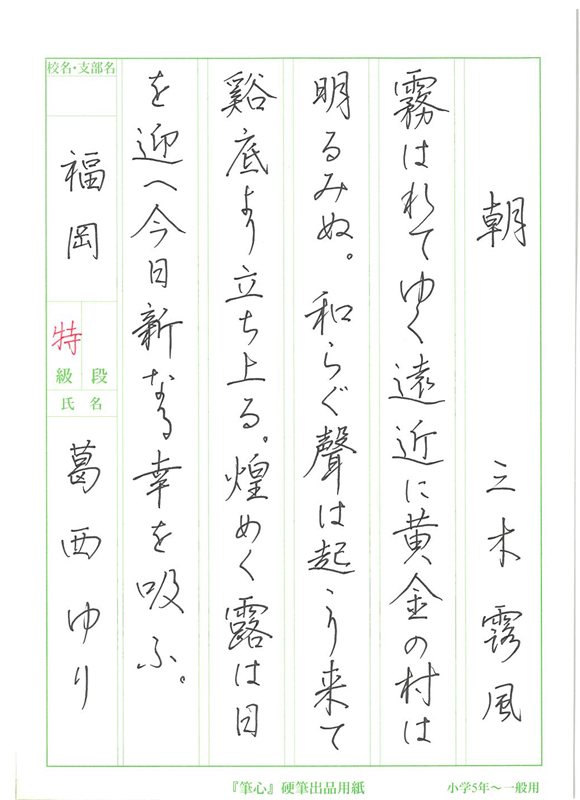 朝 三木露風
霧はれてゆく遠近に黄金の村は
明るみぬ。和らぐ聲は起こり来て
谿底より立ち上る。煌めく露は日
を迎へ今日新なる幸を吸ふ。
校名・支部名
福岡
特
級 段
氏名
葛西ゆり
『筆心』硬筆出品用紙
小学5年～一般用